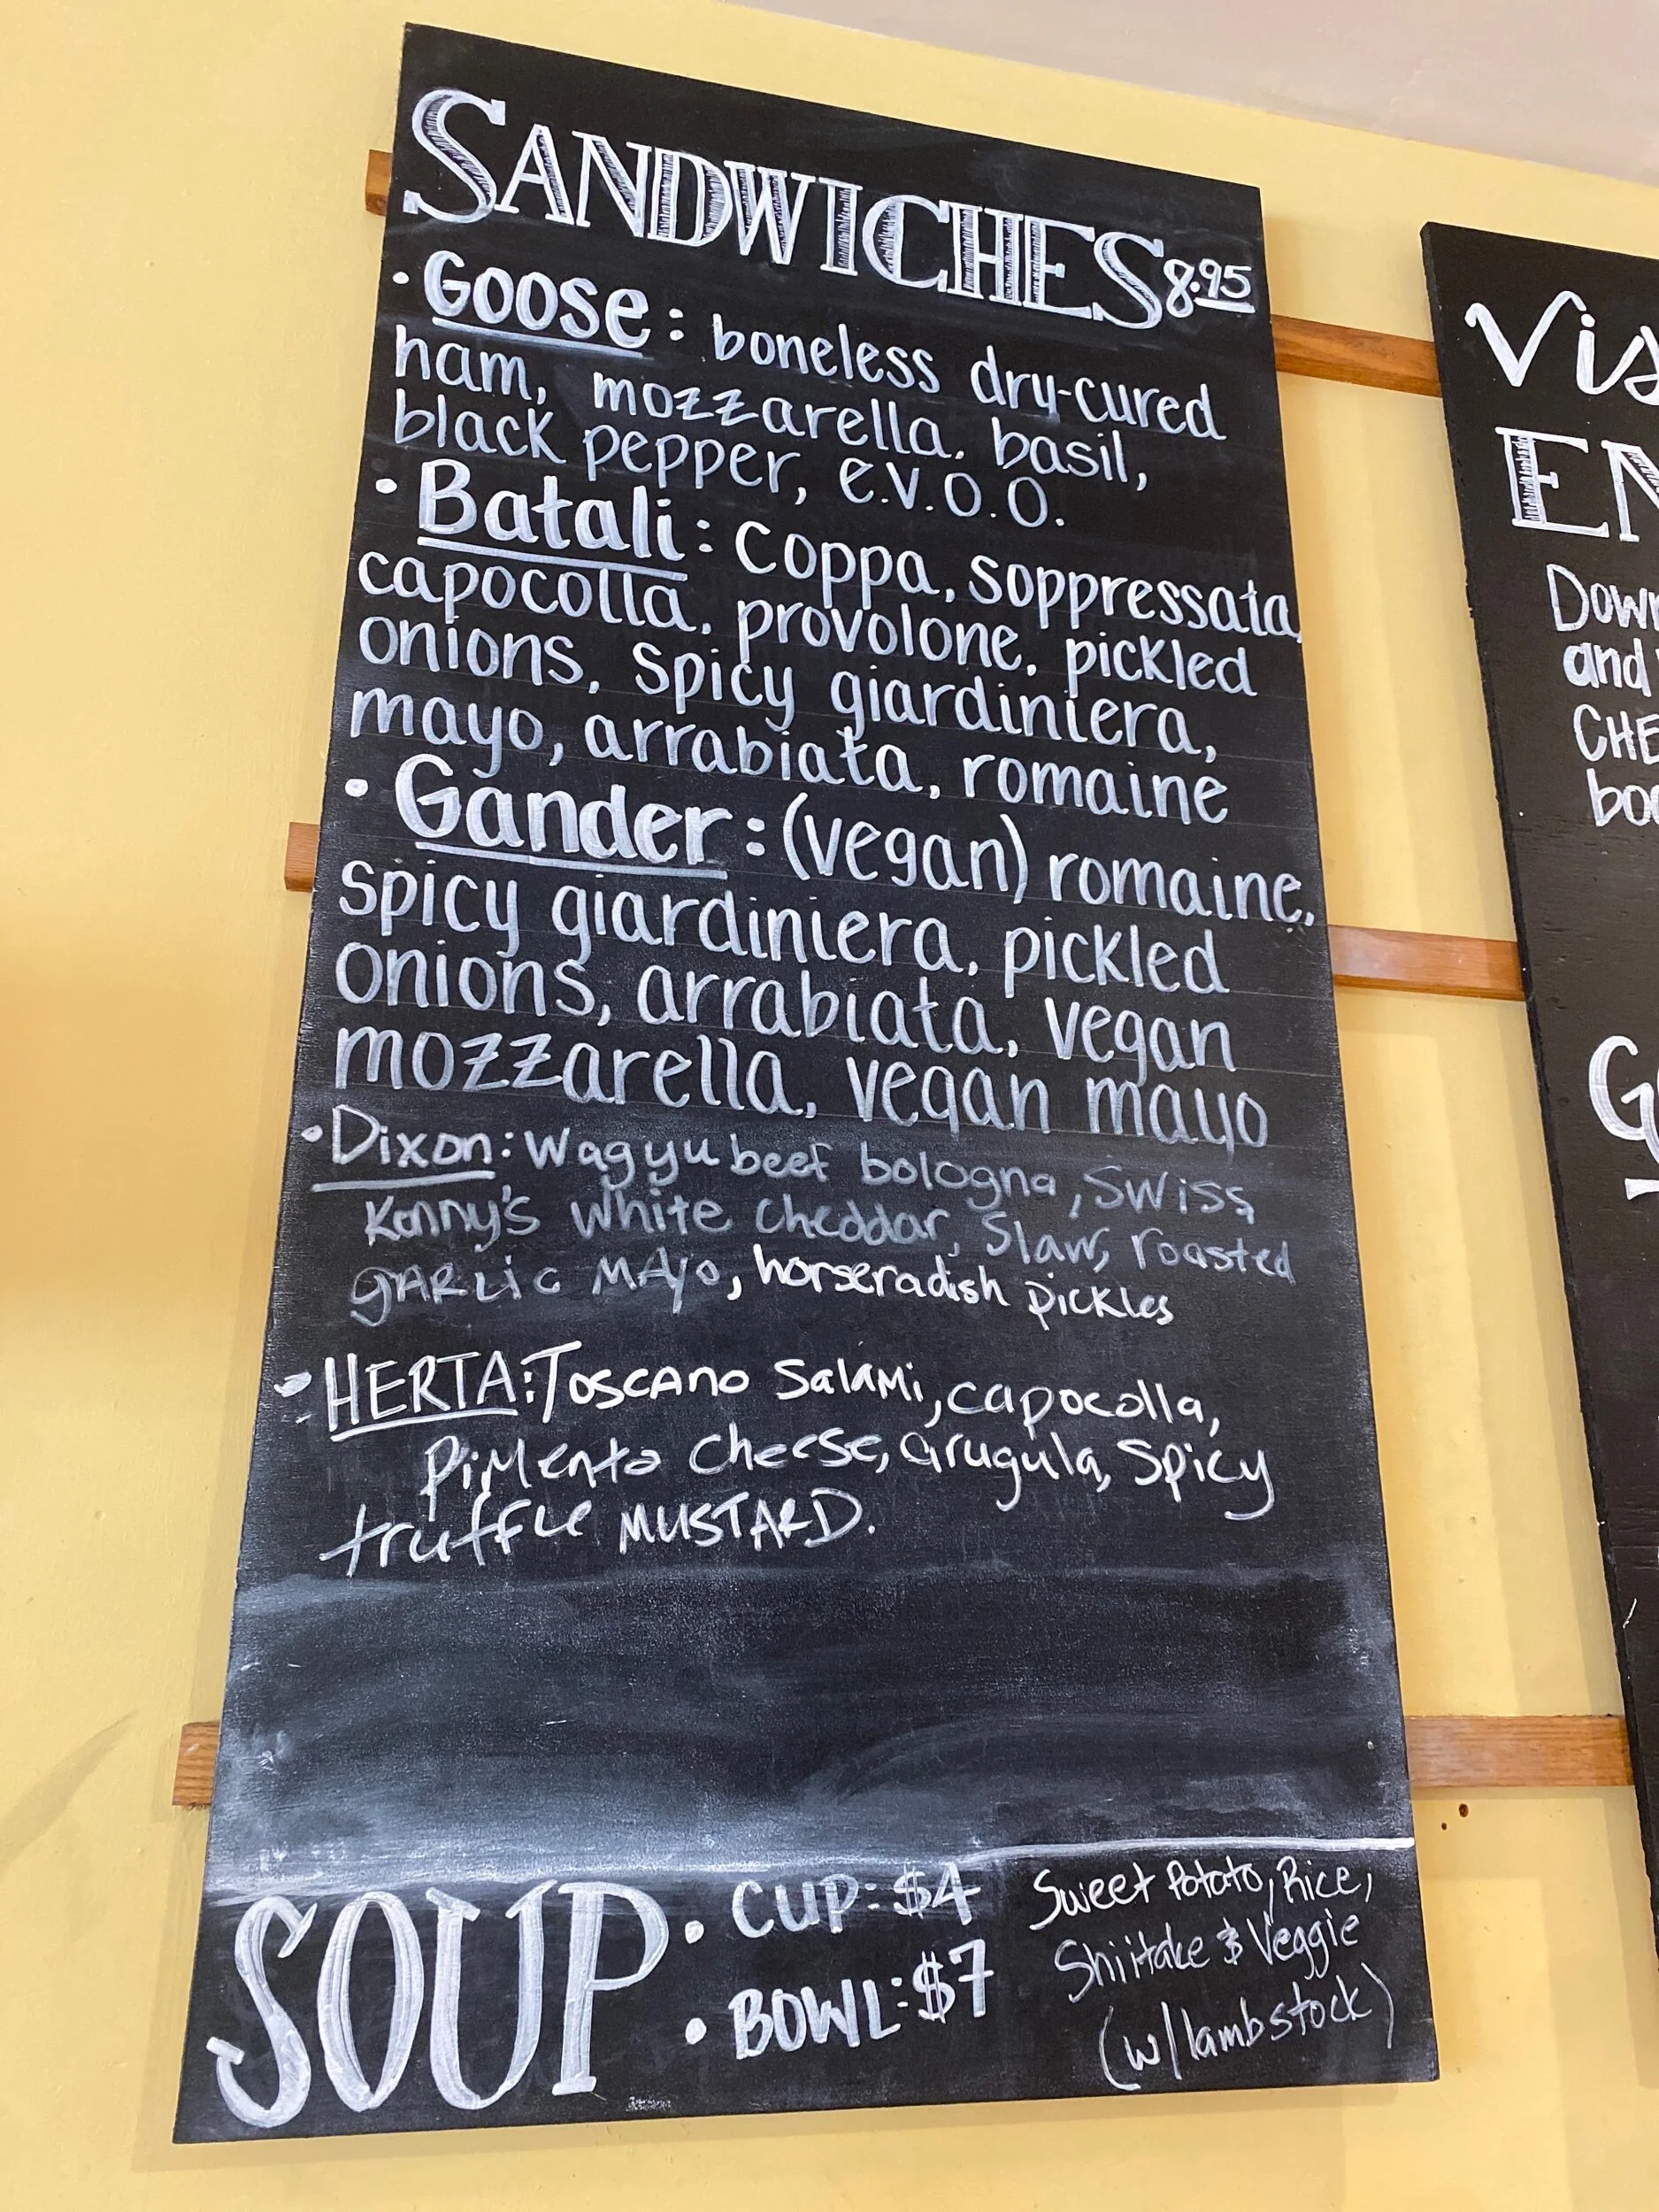 SANDWICHES 8.95
• Goose: boneless dry-cured
ham, mozzarella, basil,
black pepper, e.v.o.o.
• Batali: coppa, soppressata,
capocolla, provolone, pickled
onions, spicy giardiniera,
mayo, arrabiata, romaine
• Gander: (vegan) romaine,
spicy giardiniera, pickled
onions, arrabiata, vegan
mozzarella, vegan mayo
• Dixon: Wagyu beef bologna, Swiss,
Kenny's white cheddar, Slaw, roasted
gARLiC MAyo, horseradish pickles
• HERTA: Toscano Salami, capocolla,
PiMento cheese, arugula, Spicy
truffle MUSTARD.
SOUP
• CUP: $4
• BOWL: $7
Sweet Potato, Rice,
Shiitake & Veggie
(w/ lamb stock)
Vis
EN
Down
and
CHE
boo
G